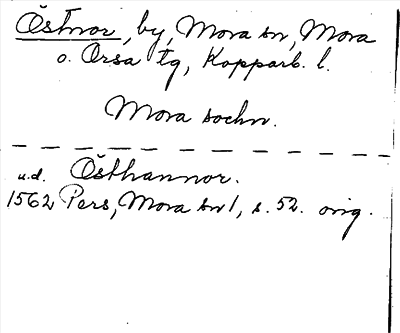 Östnor, by, Mora sn, Mora
o. Orsa tg, Kopparb. l.
Mora sochn.
u.d. Östhannor.
1562 Pers, Mora sn 1, s. 52. orig.